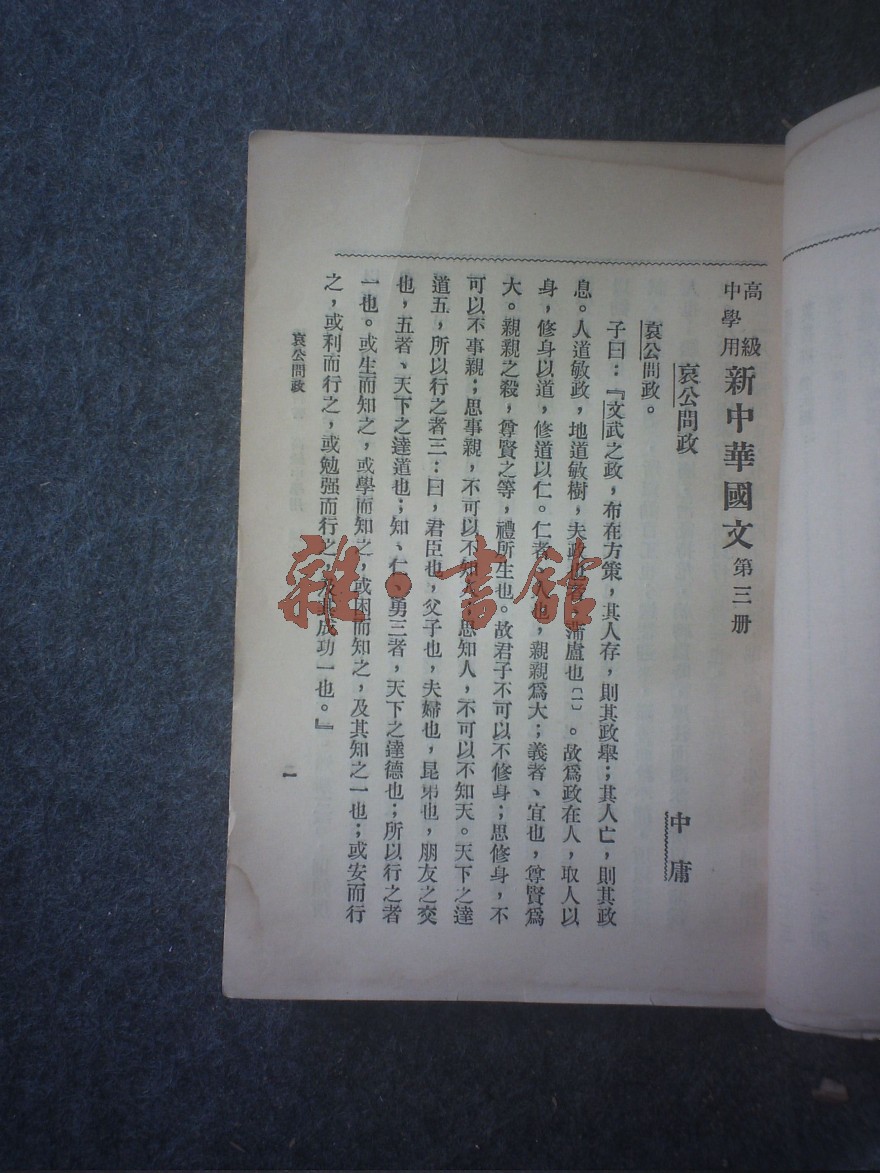 高級中學用 新中華國文 第三册
哀公問政 中庸
哀公問政。
子曰：『文武之政，布在方策，其人存，則其政舉；其人亡，則其政
息。人道敏政，地道敏樹，夫政也者，蒲盧也〔一〕。故爲政在人，取人以
身，修身以道，修道以仁。仁者、人也，親親爲大；義者、宜也，尊賢爲
大。親親之殺，尊賢之等，禮所生也。故君子不可以不修身；思修身，不
可以不事親；思事親，不可以不知人；思知人，不可以不知天。天下之達
道五，所以行之者三：曰，君臣也，父子也，夫婦也，昆弟也，朋友之交
也，五者、天下之達道也；知、仁、勇三者，天下之達德也；所以行之者
一也。或生而知之，或學而知之，或困而知之，及其知之一也；或安而行
之，或利而行之，或勉强而行之，及其成功一也。』
哀公問政
雜。書館